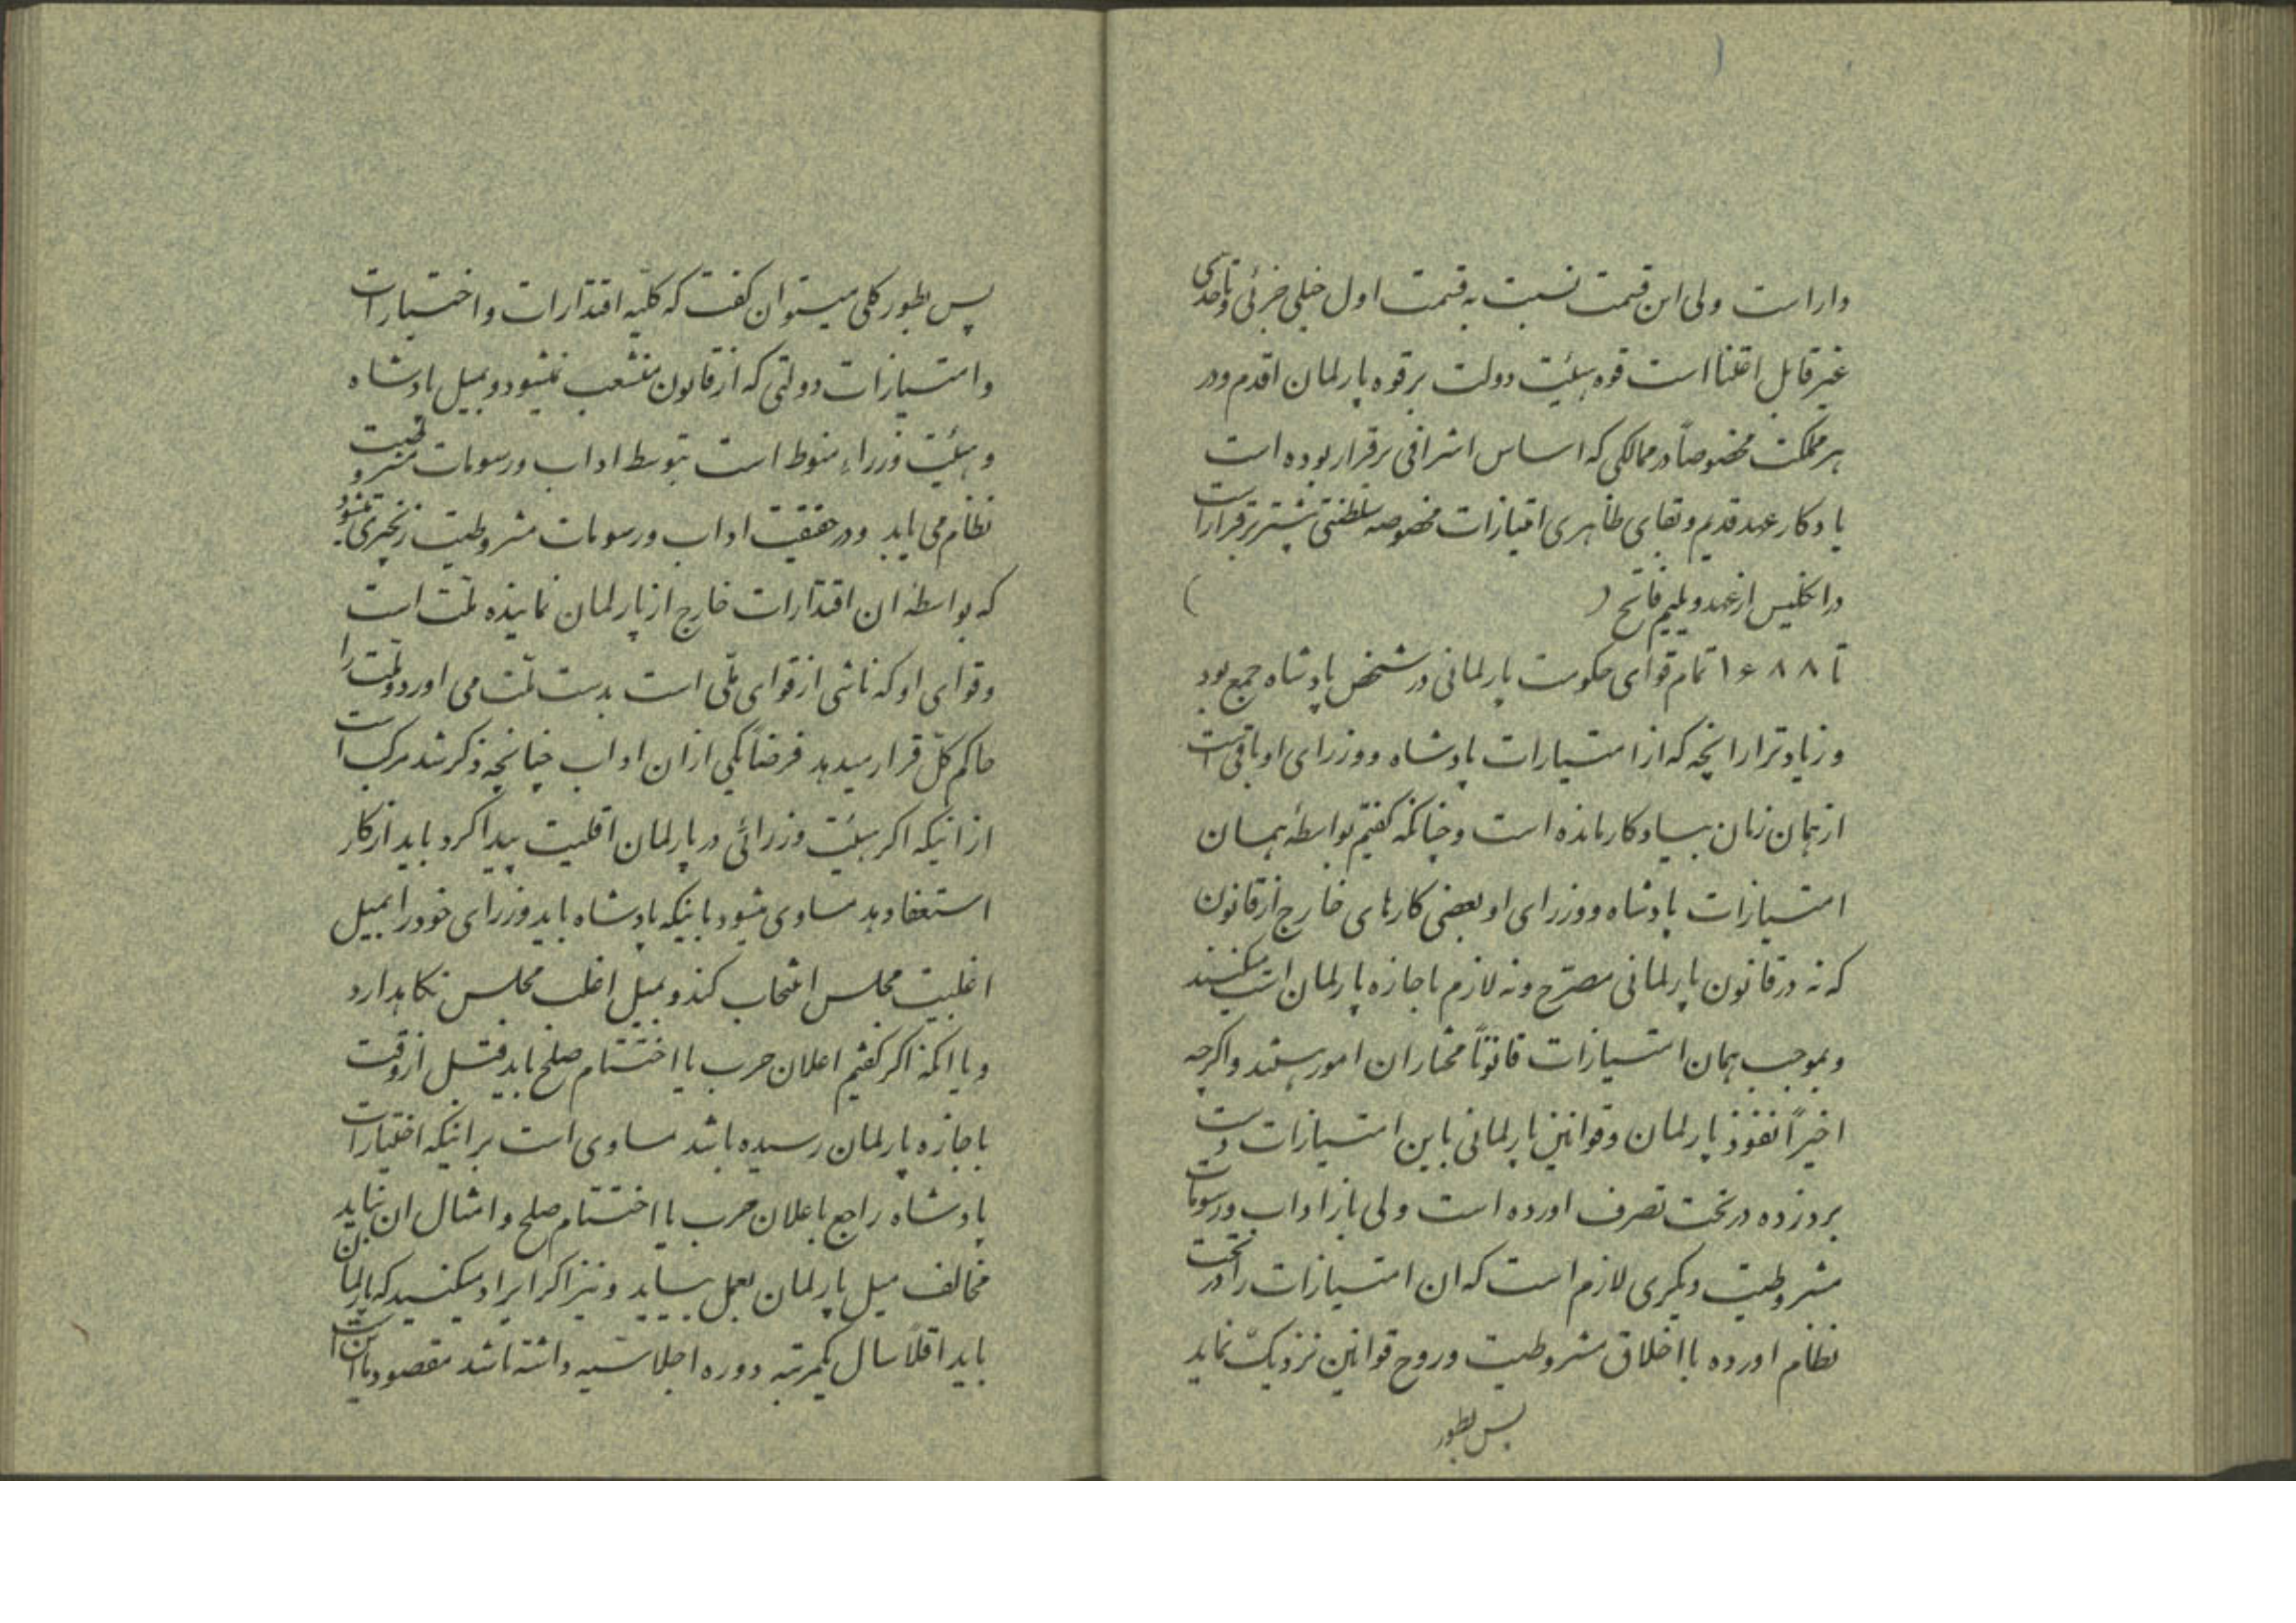 داراست ولی این قسمت نسبت به قسمت اول خیلی جزئی و تا حدی
غیر قابل اعتنا است قوه هیئت دولت بر قوه پارلمان اقدم و در
هر مملکت مخصوصاً در ممالکی که اساس اشرافی برقرار بوده است
یادکار عهد قدیم و بقای ظاهری امتیازات مخصوصه سلطنتی بیشتر برقرار است
در انکلیس از عهد ویلیم فاتح ( )
تا ۱۶۸۸ تمام قوای حکومت پارلمانی در شخص پادشاه جمع بود
و زیادتر از انچه که از امتیازات پادشاه و وزرای او باقی است
از همان زمان بیادکار مانده است و چنانکه کفتیم بواسطهٔ همان
امتیازات پادشاه و وزرای او بعضی کارهای خارج از قانون
که نه در قانون پارلمانی مصرّح و نه لازم باجازه پارلمان است میکنند
و بموجب همان امتیازات قانوناً مختار ان امور هستند و اکرچه
اخیراً نفوذ پارلمان و قوانین پارلمانی باین امتیازات دست
برد زده در تحت تصرف اورده است ولی باز اداب و رسومات
مشروطیت دیکری لازم است که ان امتیازات را در تحت
نظام اورده با اخلاق مشروطیت و روح قوانین نزدیک نماید
پس بطور
پس بطور کلی میتوان کفت که کلیّه اقتدارات و اختیارات
و امتیازات دولتی که از قانون منشعب نمیشود و بمیل پادشاه
و هیئت وزراء منوط است بتوسط اداب و رسومات مشروطیت
نظام می یابد و در حقیقت اداب و رسومات مشروطیت زنجیری میشود
که بواسطه ان اقتدارات خارج از پارلمان نماینده ملّت است
و قوای او که ناشی از قوای ملّی است بدست ملّت می اورد و ملّت را
حاکم کلّ قرار میدهد فرضاً یکی از ان اداب چنانچه ذکر شد مرکب است
از اینکه اکر هیئت وزرائی در پارلمان اقلیت پیدا کرد باید از کار
استعفا دهد مساوی میشود باینکه پادشاه باید وزرای خود را بمیل
اغلبیت مجلس انتخاب کند و بمیل اغلب مجلس نکاهدارد
و یا انکه اکر کفتیم اعلان حرب یا اختتام صلح باید قبل از وقت
باجازه پارلمان رسیده باشد مساوی است بر اینکه اختیارات
پادشاه راجع باعلان حرب یا اختتام صلح و امثال ان نباید
مخالف میل پارلمان بعمل بیاید و نیز اکر ایراد میکنید که پارلمان
باید اقلاً سال یکمرتبه دوره اجلاسیه داشته باشد مقصود ما این است